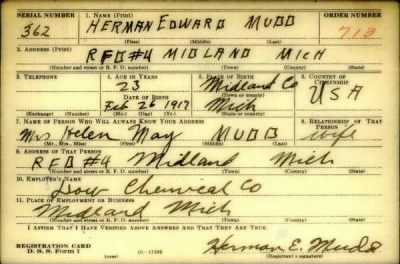 SERIAL NUMBER 1. NAME (Print) ORDER NUMBER
362 HERMAN EDWARD MUDD 713
(First) (Middle) (Last)
2. ADDRESS (Print)
RFD #4 MIDLAND MICH
(Number and street or R. F. D. number) (Town) (County) (State)
3. TELEPHONE 4. AGE IN YEARS 5. PLACE OF BIRTH 6. COUNTRY OF CITIZENSHIP
23 Midland Co
DATE OF BIRTH (Town or county)
Feb 26 1917 Mich USA
(Exchange) (No.) (Mo.) (Day) (Yr.) (State or country)
7. NAME OF PERSON WHO WILL ALWAYS KNOW YOUR ADDRESS 8. RELATIONSHIP OF THAT PERSON
Mrs Helen May MUDD Wife
(Mr., Mrs., Miss) (First) (Middle) (Last)
9. ADDRESS OF THAT PERSON
RFD #4 Midland Mich
(Number and street or R. F. D. number) (Town) (County) (State)
10. EMPLOYER'S NAME
Dow Chemical Co
11. PLACE OF EMPLOYMENT OR BUSINESS
Midland Mich
(Number and street or R. F. D. number) (Town) (County) (State)
I AFFIRM THAT I HAVE VERIFIED ABOVE ANSWERS AND THAT THEY ARE TRUE.
REGISTRATION CARD
D. S. S. Form 1 Herman E. Mudd
(Registrant's signature)